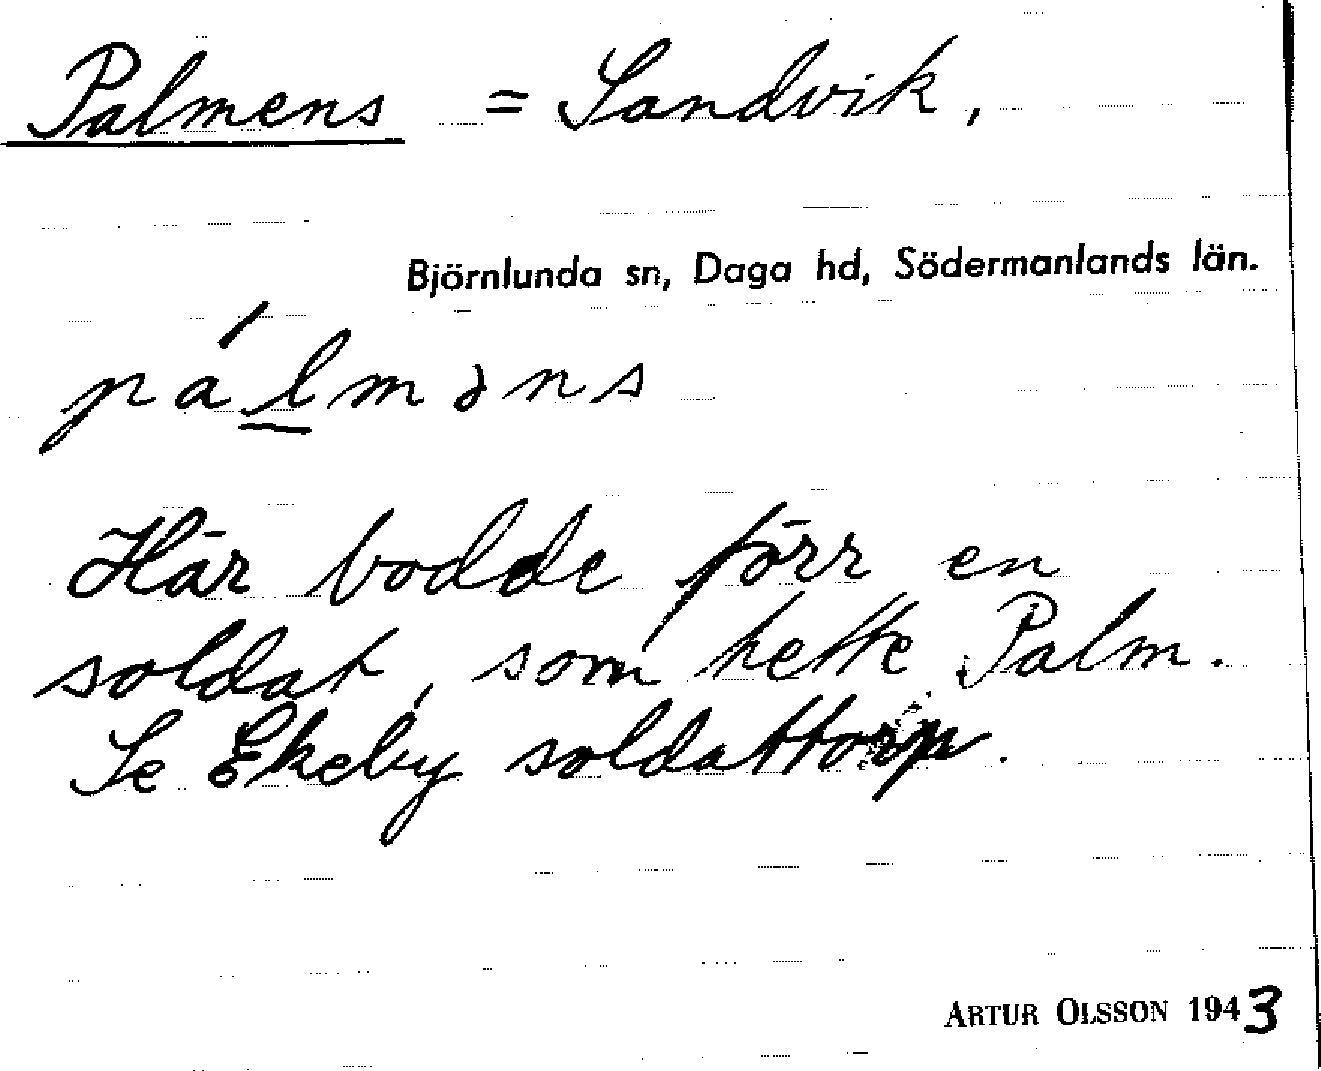 Palmens = Sandvik,
Björnlunda sn, Daga hd, Södermanlands län.
pálməns
Här bodde förr en
soldat, som hette Palm.
Se Ekeby soldattorp.
ARTUR OLSSON 1943